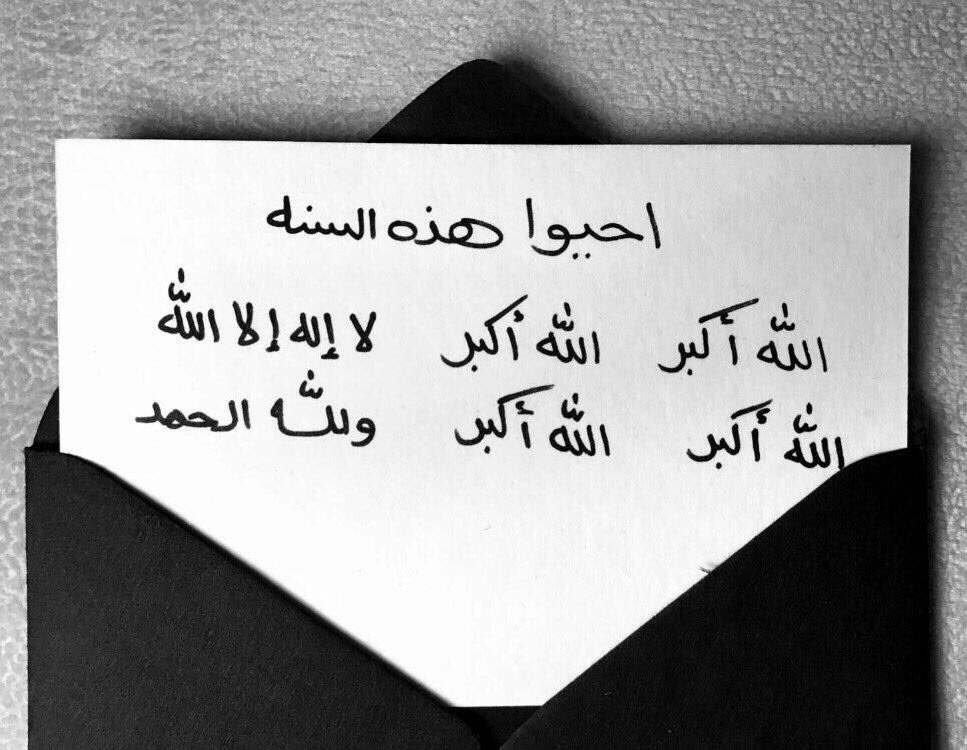 احيوا هذه السنه
الله أكبر الله أكبر لا إله إلا الله
الله أكبر الله أكبر ولله الحمد